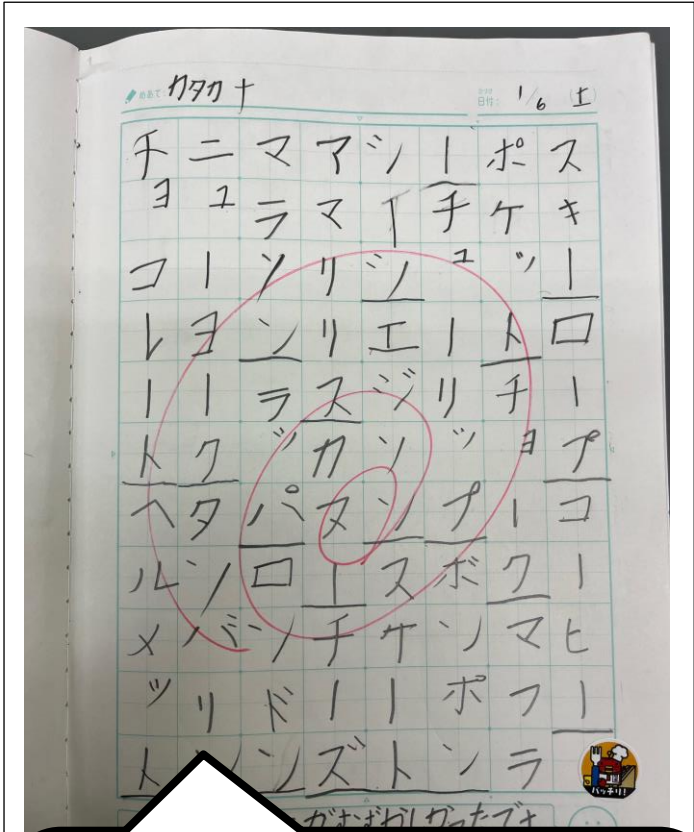 めあて: カタカナ
日付: 1/6 (土)
スキーロープコーヒー
ポケットチョークマフラ
ーチューリップボンポン
ジージエジソンスケート
アマリリスカヌーチーズ
マラソンラッパロンドン
ニューヨークタンバリン
チョコレートヘルメット
バッチリ!